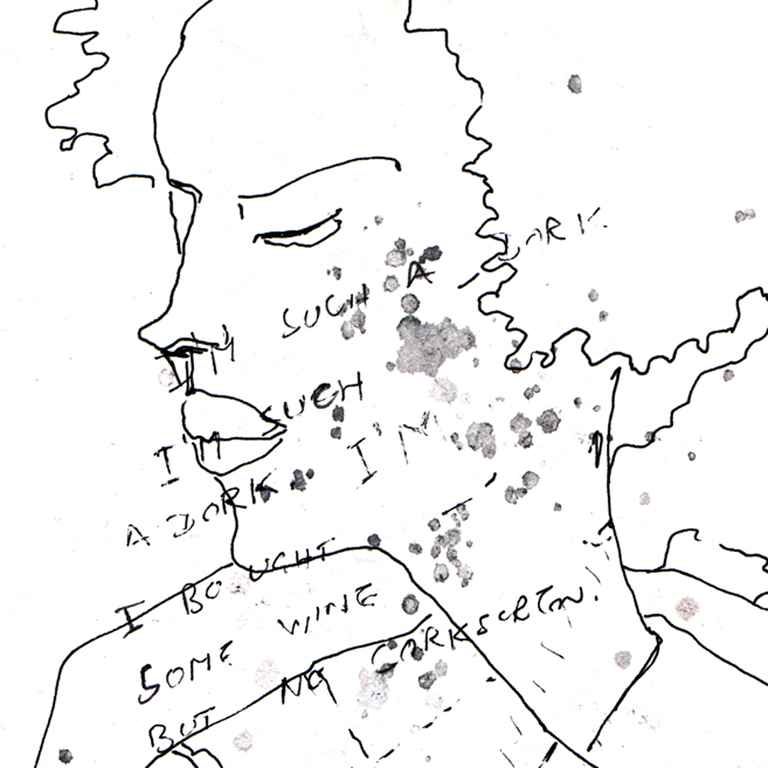 I'M SUCH A DORK
I'M SUCH
A DORK I'M
I BOUGHT
SOME WINE
BUT NO CORKSCREW.